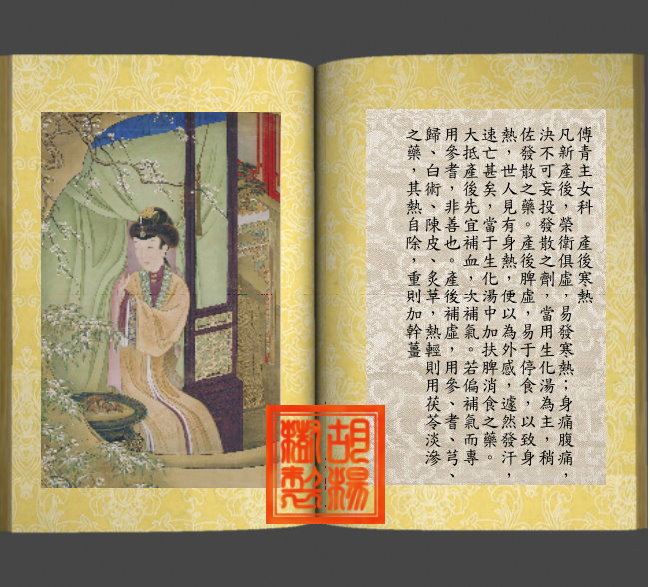 傅青主女科　產後寒熱
凡新產後，榮衛俱虛，易發寒熱；身痛腹痛，
決不可妄投發散之劑，當用生化湯為主，稍
佐發散之藥。產後脾虛，易于停食，以致身
熱，世人見有身熱，便以為外感，遽然發汗，
速亡甚矣，當于生化湯中加扶脾消食之藥。
大抵產後先宜補血，次補氣。若偏補氣而專
用參耆，非善也。產後補虛，用參、耆、芎、
歸、白術、陳皮、炙草，熱輕則用茯苓淡滲
之藥，其熱自除，重則加幹薑
胡楊
製